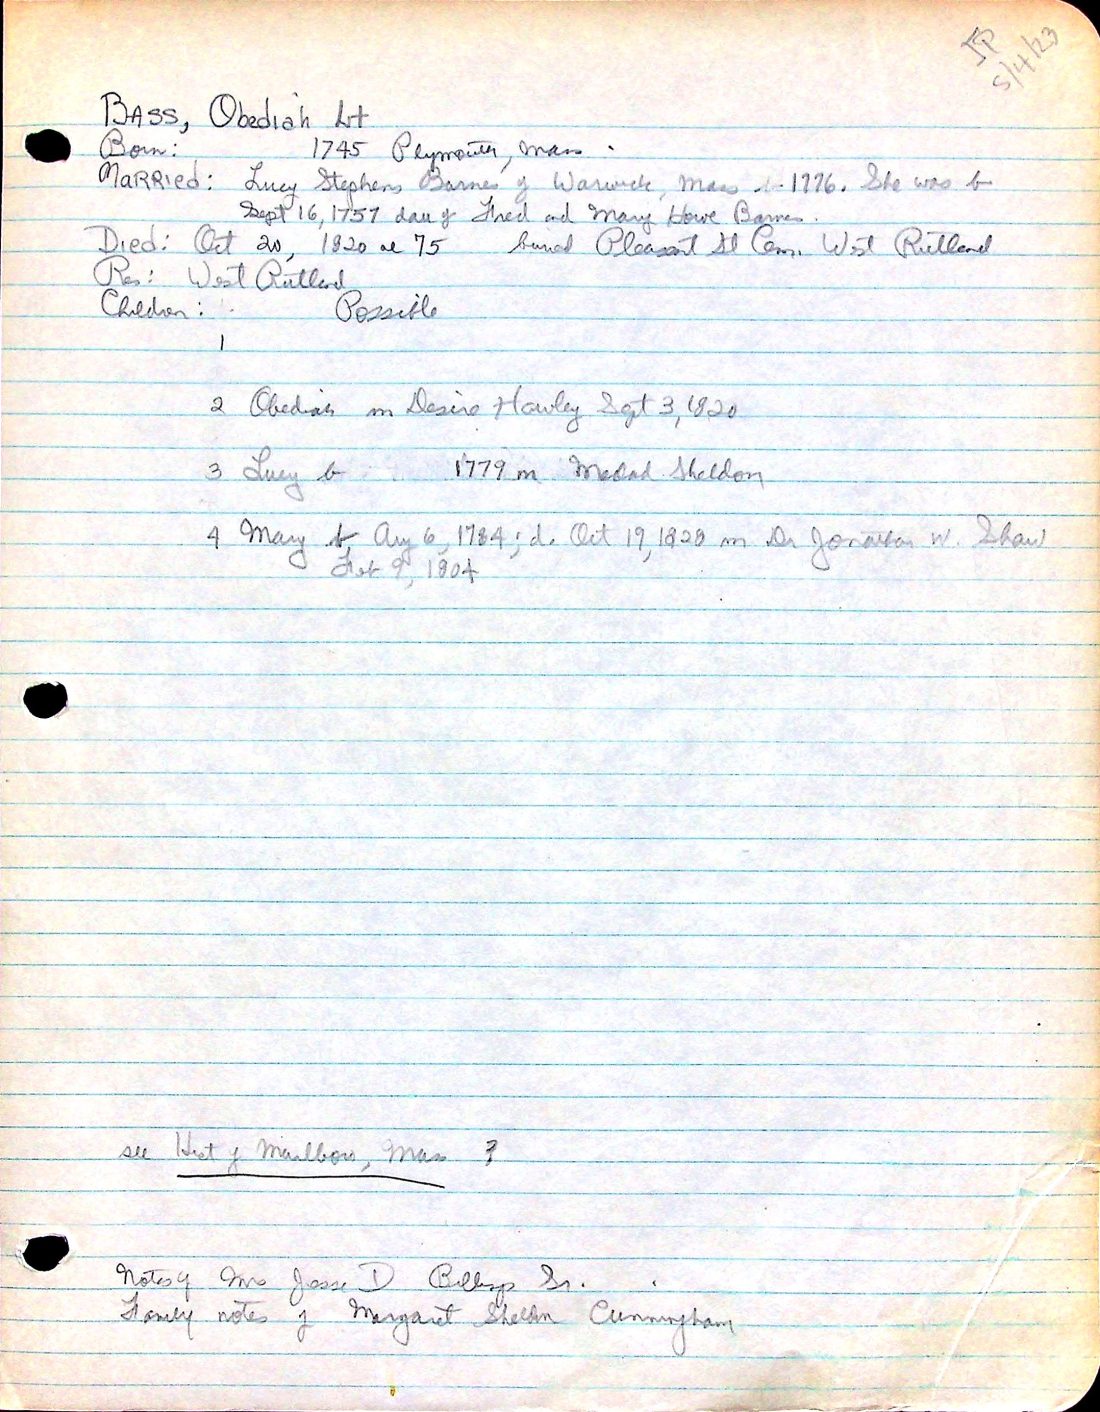 JP
5/4/23
BASS, Obediah Lt
Born: 1745 Plymouth, Mass.
MARRied: Lucy Stephens Barnes of Warwick, Mass 1776. She was b
Sept 16, 1757 dau of Fred and Mary Howe Barnes.
Died: Oct 20, 1820 ae 75 buried Pleasant St Cem. West Rutland
Res: West Rutland
Children: Possible
1
2 Obediah m Desire Hawley Sept 3, 1820
3 Lucy b 1779 m Medad Sheldon
4 Mary b Aug 6, 1784; d. Oct 19, 1828 m Dr Jonathan W. Shaw
Feb 9, 1804
see Hist of Marlboro, Mass ?
Notes of Mrs Jesse D Billings Sr.
Family notes of Margaret Sheldon Cunningham